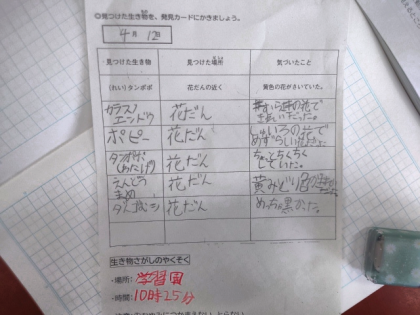 ◎見つけた生き物を、発見カードにかきましょう。
4月 12日
・見つけた生き物 見つけた場所 気づいたこと
(れい)タンポポ 花だんの近く 黄色の花がさいていた。
カラスノエンドウ 花だん
ポピー 花だん
タンポポ(わたげ) 花だん ちょっとちくちくしていた。
えんどうまめ 花だん 黄みどり色
ダンゴムシ 花だん めっちゃ黒かった。
生き物さがしのやくそく
・場所: 学習園
・時間: 10時25分